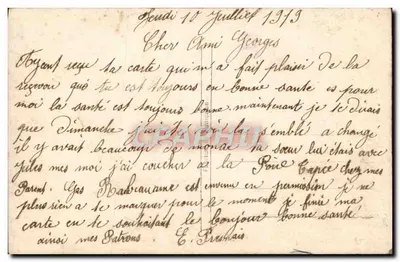 Jeudi 10 Juillet 1913
Cher Ami Georges
Ayent reçu ta carte qui m'a fait plaisir de la
reçevoir que tu est toujours en bonne santé es pour
moi la santé est toujours bonne maintenant je te dirais
que dimanche semblé a changé
il y avait beaucoup de monde ta sœur lui étais avec
Jules mes moi j'ai coucher a la chez mes
Parent. est en permission je ne
plus rien a te marquer pour le moment je finis ma
carte en te souhaitant le bonjour bonne santé
ainsi mes Patrons. E.